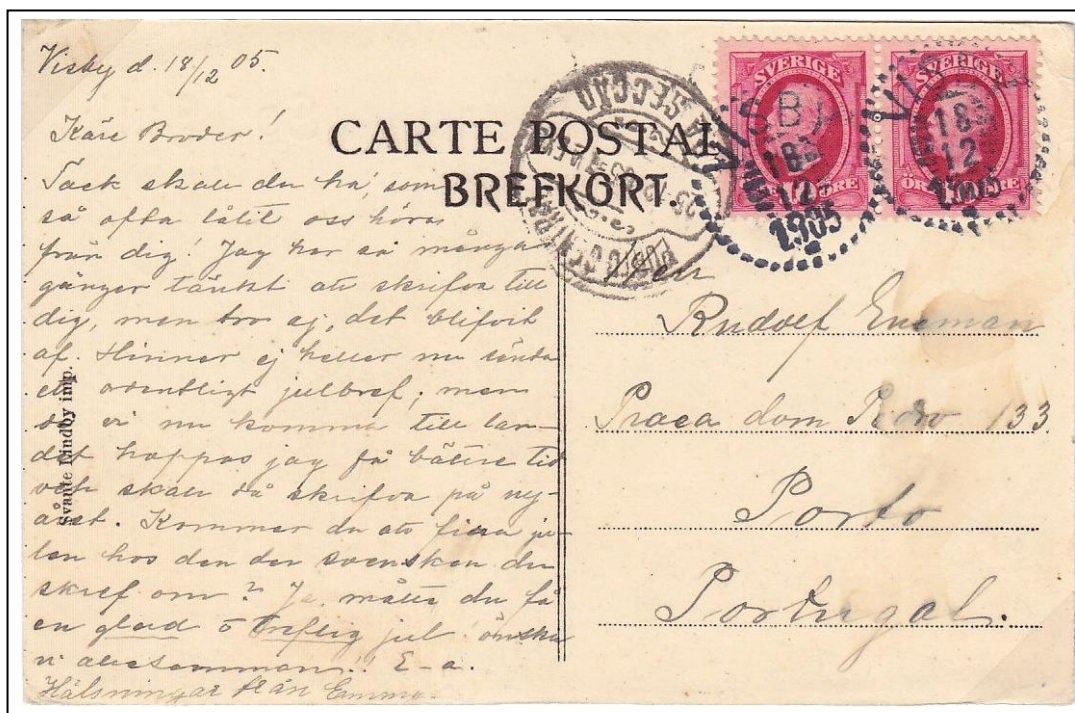 Visby d. 18/12 05.
Käre Broder!
Tack skall du ha, som
så ofta låtit oss höra
från dig! Jag har så många
gånger tänkt att skrifva till
dig, men tro ej, det blifvit
af. Hinner ej heller nu sända
ett ordentligt julbref, men
då vi nu komma till lan-
det hoppas jag få bättre tid
och skall då skrifva på ny-
året. Kommer du att fira ju-
len hos den der svensken du
skref om? Ja, måtte du få
en glad o treflig jul önska
vi allesamman!! E-a.
Hälsningar från Emma.
Svante Lindby imp.
CARTE POSTALE
BREFKORT.
SVERIGE
TIO ÖRE
SVERIGE
TIO ÖRE
VISBY
18
12
1905
VISBY
18
12
1905
SECCÃO
Rudolf Eneman
Praca dom Pedro 133
Porto
Portugal.